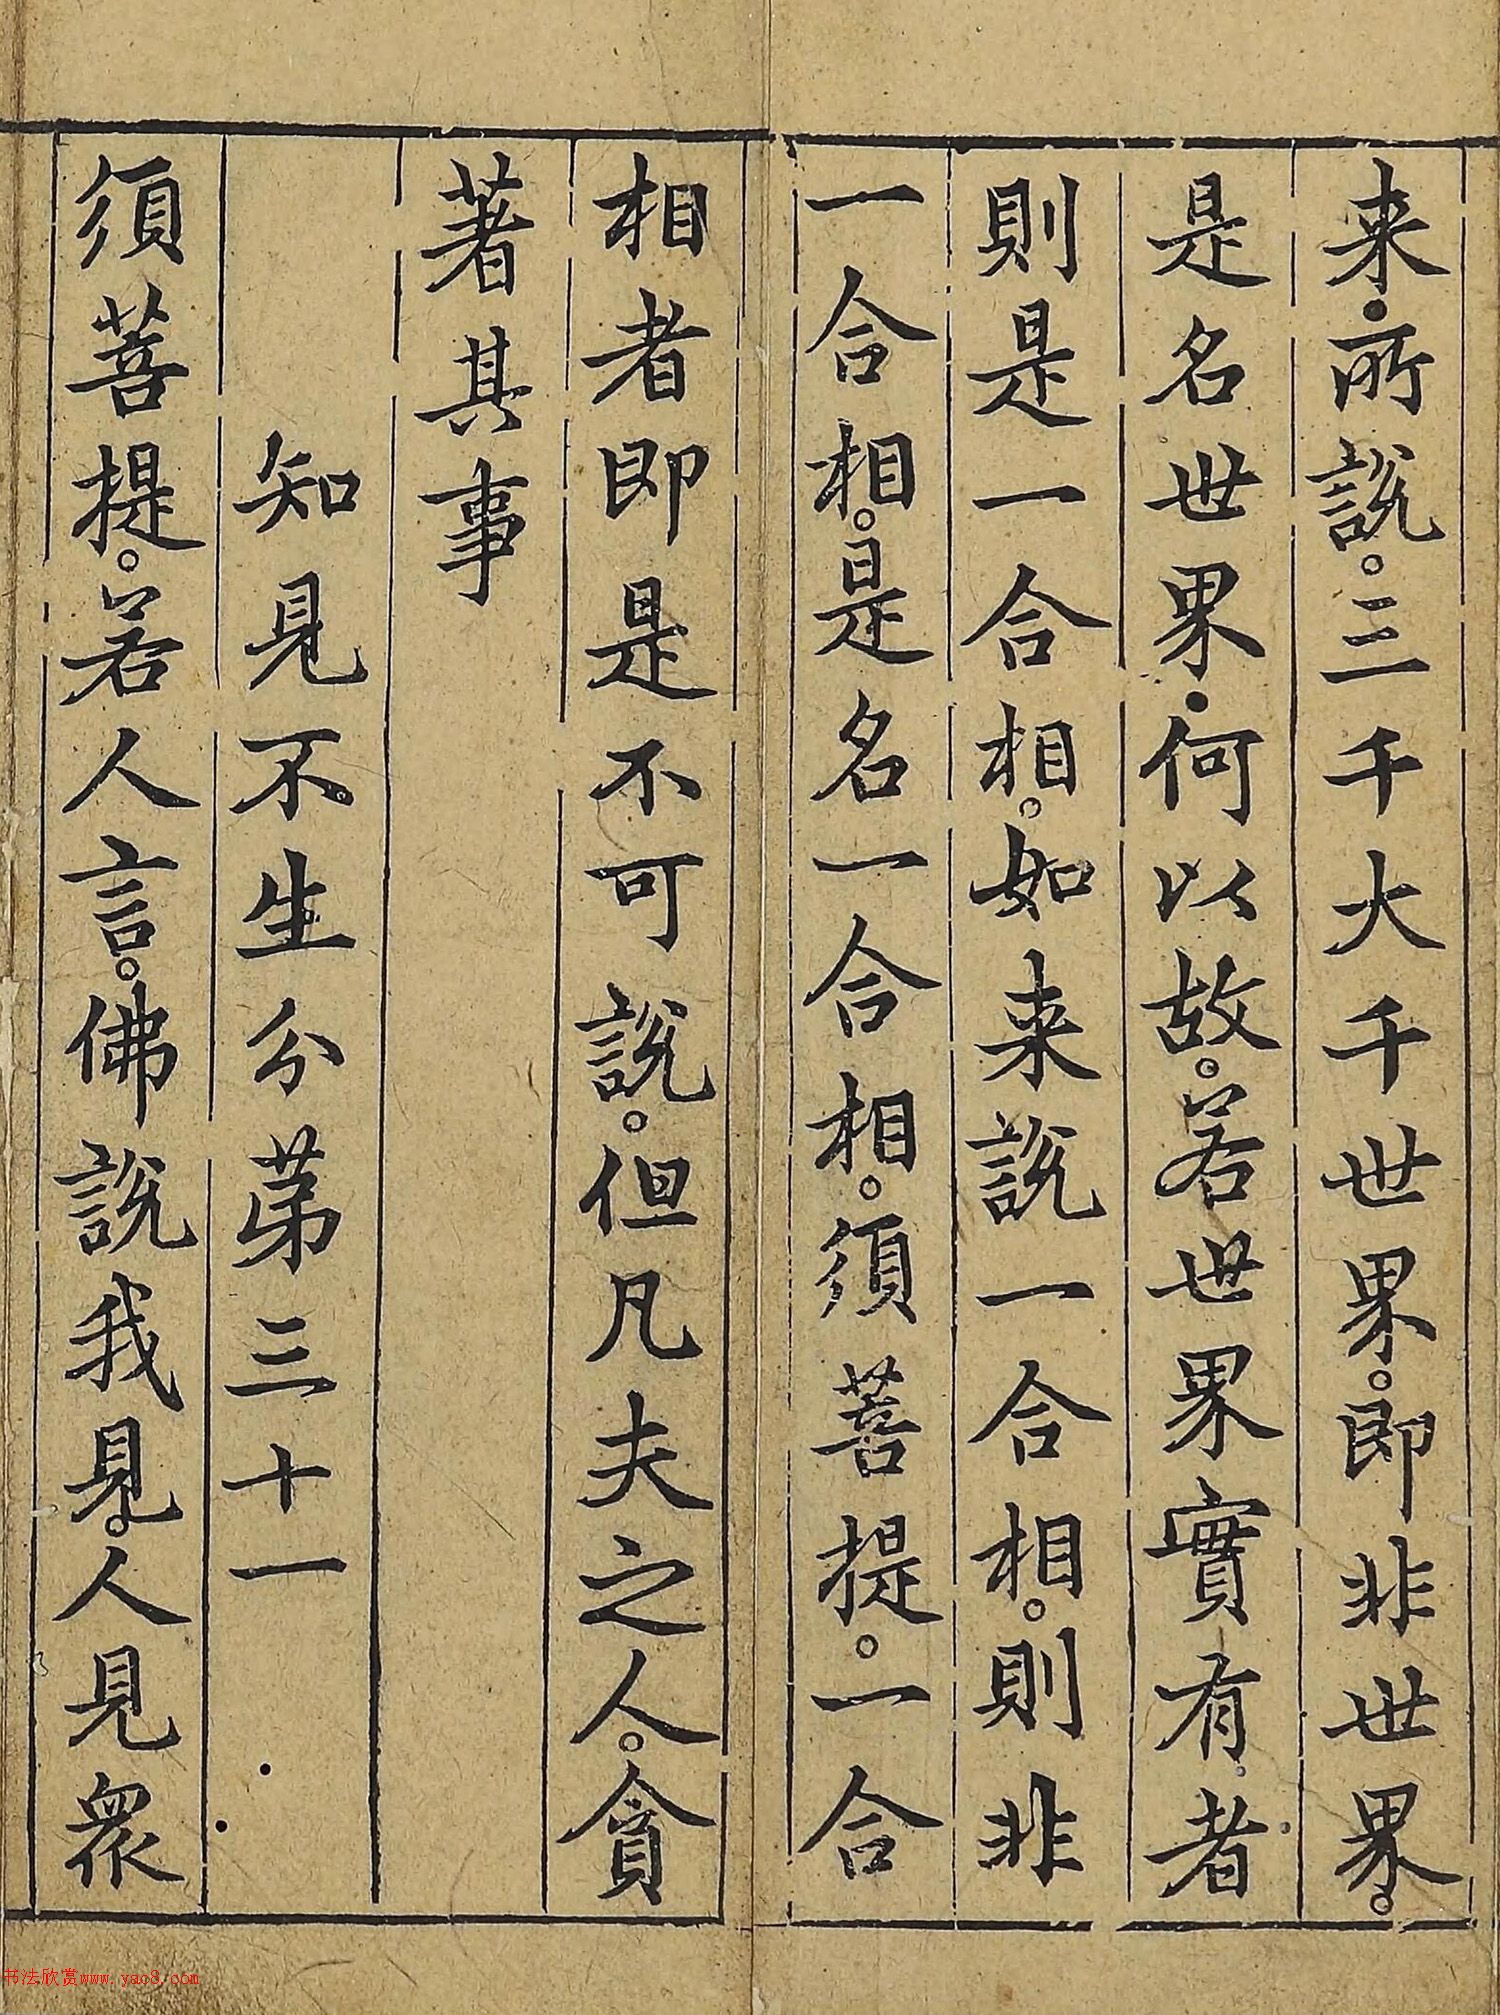 来。所說。三千大千世界。即非世界。
是名世界。何以故。若世界實有者
則是一合相。如来說一合相。則非
一合相。是名一合相。須菩提。一合
相者即是不可說。但凡夫之人。貪
著其事
知見不生分苐三十一
須菩提。若人言。佛說我見。人見衆
书法欣赏www.yac8.com